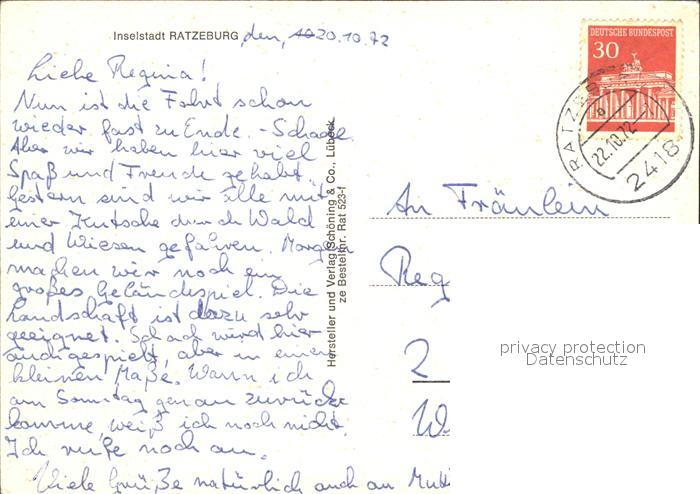 Inselstadt RATZEBURG, den, 20.10.72
Liebe Regina!
Nun ist die Fahrt schon
wieder fast zu Ende. - Schade
Aber wir haben hier viel
Spaß und Freude gehabt.
Gestern sind wir alle mit
einer Kutsche durch Wald
und Wiesen gefahren. Morgen
machen wir noch ein
großes Geländespiel. Die
Landschaft ist dazu sehr
geeignet. Schach wird hier
auch gespielt, aber in einem
kleinen Maße. Wann ich
am Sonntag genau zurück
komme, weiß ich noch nicht.
Ich rufe noch an.
Viele Grüße natürlich auch an Mutti
Hersteller und Verlag Schöning & Co., Lübeck
ze Bestellnr. Rat 523-f
DEUTSCHE BUNDESPOST
30
RATZEB
22.10.72
2418
An Fräulein
Reg
2
W
privacy protection
Datenschutz